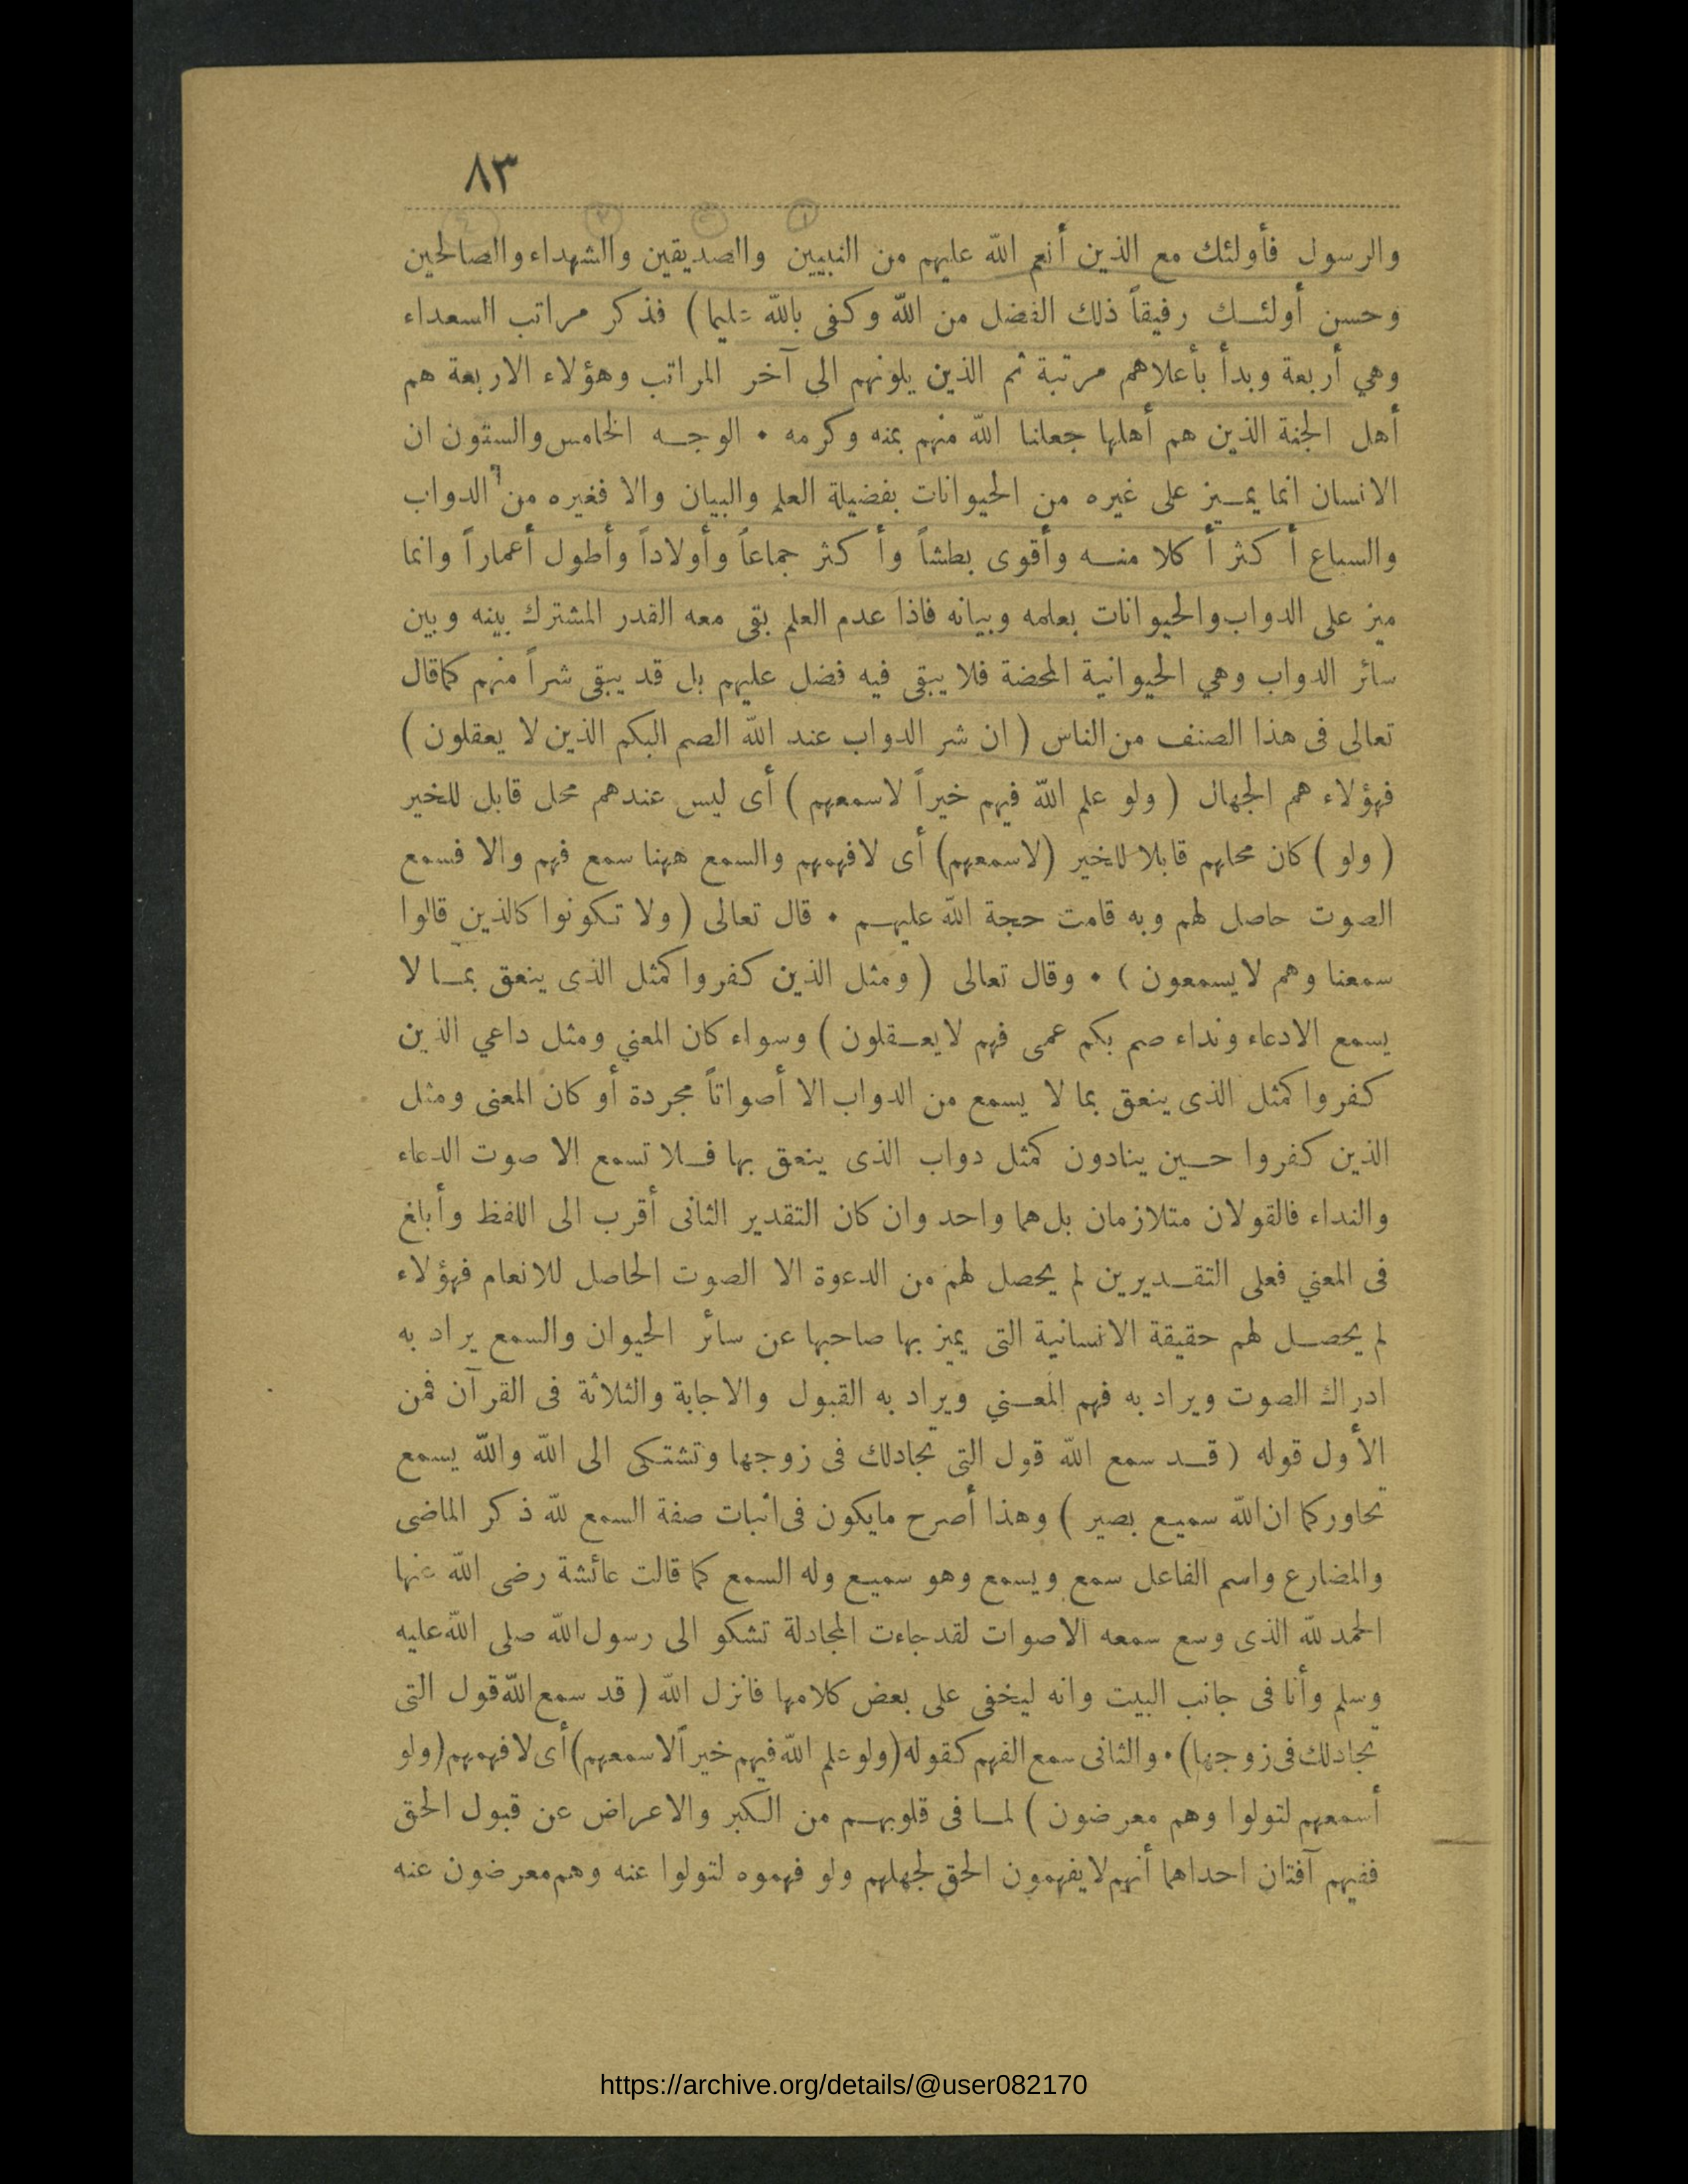 ٨٣
والرسول فأولئك مع الذين أنعم الله عليهم من النبيين والصديقين والشهداء والصالحين
وحسن أولئك رفيقاً ذلك الفضل من الله وكفى بالله عليما ) فذكر مراتب السعداء
وهي أربعة وبدأ بأعلاهم مرتبة ثم الذين يلونهم الى آخر المراتب وهؤلاء الاربعة هم
أهل الجنة الذين هم أهلها جعلنا الله منهم بمنه وكرمه • الوجه الخامس والستون ان
الانسان انما يميز على غيره من الحيوانات بفضيلة العلم والبيان والا فغيره من الدواب
والسباع أكثر أكلا منه وأقوى بطشاً وأكثر جماعاً وأولاداً وأطول أعماراً وانما
ميز على الدواب والحيوانات بعلمه وبيانه فاذا عدم العلم بقى معه القدر المشترك بينه وبين
سائر الدواب وهي الحيوانية المحضة فلا يبقى فيه فضل عليهم بل قد يبقى شراً منهم كما قال
تعالى فى هذا الصنف من الناس ( ان شر الدواب عند الله الصم البكم الذين لا يعقلون )
فهؤلاء هم الجهال ( ولو علم الله فيهم خيراً لاسمعهم ) أى ليس عندهم محل قابل للخير
( ولو ) كان محلهم قابلا للخير (لاسمعهم) أى لافهمهم والسمع ههنا سمع فهم والا فسمع
الصوت حاصل لهم وبه قامت حجة الله عليهم • قال تعالى ( ولا تكونوا كالذين قالوا
سمعنا وهم لايسمعون ) • وقال تعالى ( ومثل الذين كفروا كمثل الذى ينعق بما لا
يسمع الادعاء ونداء صم بكم عمى فهم لايعقلون ) وسواء كان المعني ومثل داعي الذين
كفروا كمثل الذى ينعق بما لا يسمع من الدواب الا أصواتاً مجردة أو كان المعنى ومثل
الذين كفروا حين ينادون كمثل دواب الذى ينعق بها فلا تسمع الا صوت الدعاء
والنداء فالقولان متلازمان بل هما واحد وان كان التقدير الثانى أقرب الى اللفظ وأبلغ
فى المعني فعلى التقديرين لم يحصل لهم من الدعوة الا الصوت الحاصل للانعام فهؤلاء
لم يحصل لهم حقيقة الانسانية التى يميز بها صاحبها عن سائر الحيوان والسمع يراد به
ادراك الصوت ويراد به فهم المعني ويراد به القبول والاجابة والثلاثة فى القرآن فمن
الأول قوله ( قد سمع الله قول التى تجادلك فى زوجها وتشتكى الى الله والله يسمع
تحاوركما ان الله سميع بصير ) وهذا أصرح مايكون فى اثبات صفة السمع لله ذكر الماضى
والمضارع واسم الفاعل سمع ويسمع وهو سميع وله السمع كما قالت عائشة رضى الله عنها
الحمد لله الذى وسع سمعه الاصوات لقد جاءت المجادلة تشكو الى رسول الله صلى الله عليه
وسلم وأنا فى جانب البيت وانه ليخفى على بعض كلامها فانزل الله ( قد سمع الله قول التى
تجادلك فى زوجها) • والثانى سمع الفهم كقوله (ولو علم الله فيهم خيراً لاسمعهم) أى لافهمهم (ولو
أسمعهم لتولوا وهم معرضون ) لما فى قلوبهم من الكبر والاعراض عن قبول الحق
ففيهم آفتان احداهما أنهم لايفهمون الحق لجهلهم ولو فهموه لتولوا عنه وهم معرضون عنه
https://archive.org/details/@user082170